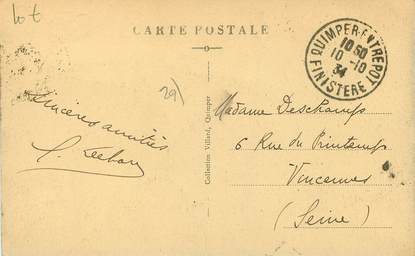 lot
CARTE POSTALE
QUIMPER-ENTREPOT
10 50
10 -10
34
FINISTERE
29)
Sincères amitiés
Collection Villard, Quimper
Madame Deschamps
6 Rue du Printemps
Vincennes
(Seine)